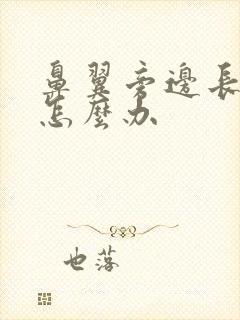 鼻翼旁邊長
怎麼办
也落